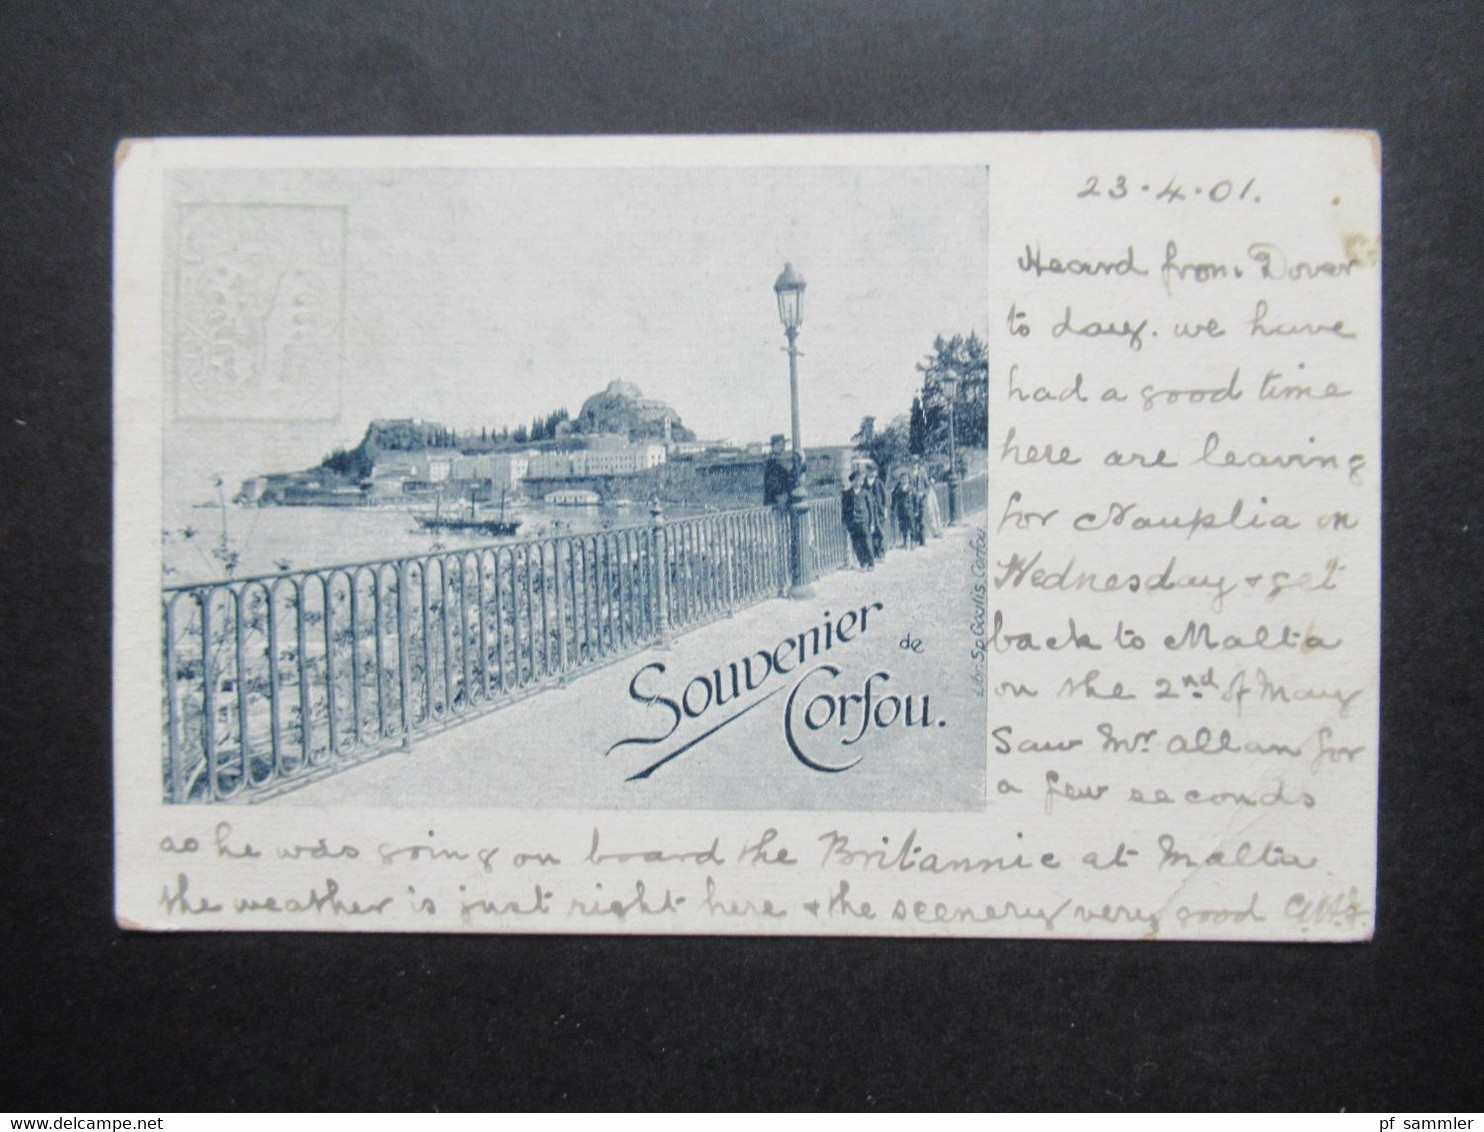 23.4.01.
Heard from Dover
to day. we have
had a good time
here are leaving
for Nauplia on
Wednesday & get
back to Malta
on the 2nd of May
Saw Mr. Allan for
a few seconds
as he was going on board the Britannic at Malta
the weather is just right here & the scenery very good
Souvenier
de
Corfou.
www.delcampe.net
pf_sammler